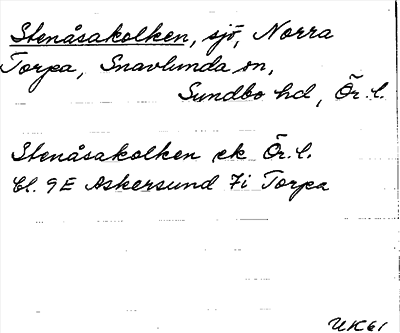 Stenåsakolken, sjö, Norra
Torpa, Snavlunda sn,
Sundbo hd, Ör. l.
Stenåsakolken ek Ör. l.
Bl. 9E Askersund 7i Torpa
UK61